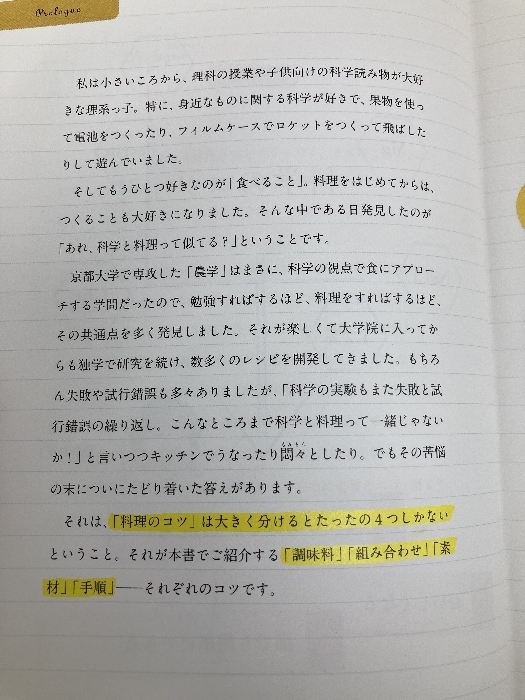 Prologue
私は小さいころから、理科の授業や子供向けの科学読み物が大好
きな理系っ子。特に、身近なものに関する科学が好きで、果物を使っ
て電池をつくったり、フィルムケースでロケットをつくって飛ばした
りして遊んでいました。
そしてもうひとつ好きなのが「食べること」。料理をはじめてからは、
つくることも大好きになりました。そんな中である日発見したのが
「あれ、科学と料理って似てる？」ということです。
京都大学で専攻した「農学」はまさに、科学の視点で食にアプロー
チする学問だったので、勉強すればするほど、料理をすればするほど、
その共通点を多く発見しました。それが楽しくて大学院に入ってか
らも独学で研究を続け、数多くのレシピを開発してきました。もちろ
ん失敗や試行錯誤も多々ありましたが、「科学の実験もまた失敗と試
行錯誤の繰り返し。こんなところまで科学と料理って一緒じゃない
か！」と言いつつキッチンでうなったり悶々としたり。でもその苦悩
の末についにたどり着いた答えがあります。
それは、「料理のコツ」は大きく分けるとたったの4つしかない
ということ。それが本書でご紹介する「調味料」「組み合わせ」「素
材」「手順」──それぞれのコツです。